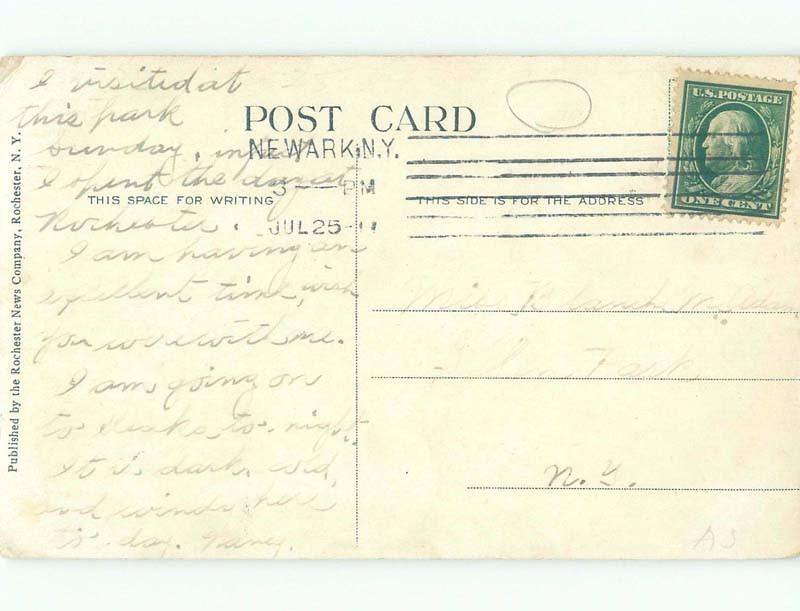 I visited at
this park
Sunday, in fact
I spent the day at
Rochester.
I am having an
excellent time, wish
you were with me.
I am going on
to to-night.
It is dark, cold,
and windy here
to-day. Nancy.
POST CARD
NEWARK, N.Y.
3 — PM
JUL 25 - 11
THIS SPACE FOR WRITING
THIS SIDE IS FOR THE ADDRESS
U.S. POSTAGE
ONE CENT
Miss Blanch M.
N.Y.
AS
Published by the Rochester News Company, Rochester, N. Y.